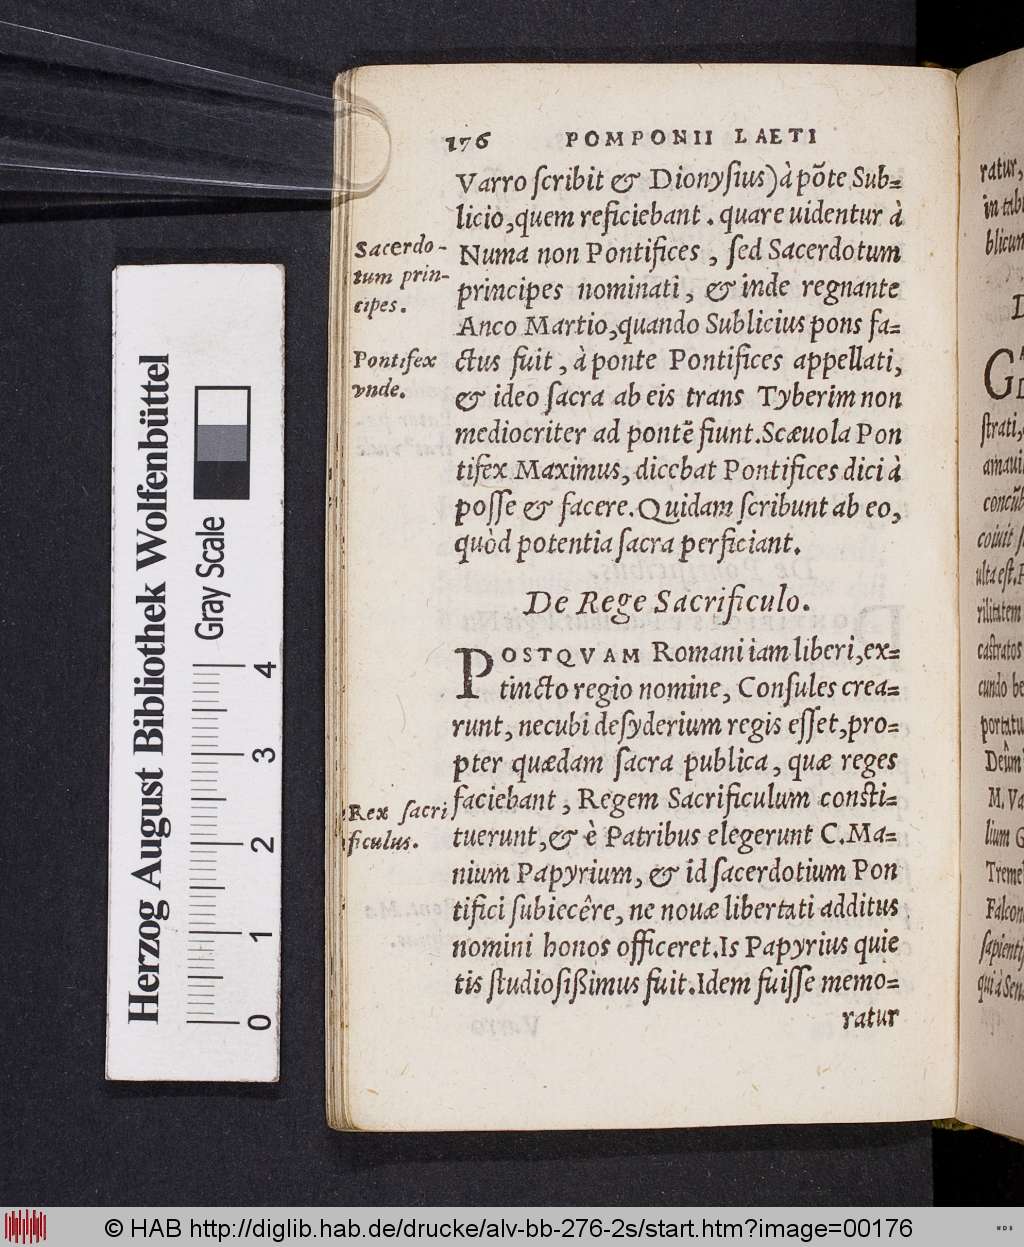 176 POMPONII LAETI
Varro ſcribit & Dionyſius) à põte Sub=
licio, quem reficiebant. quare uidentur à
Numa non Pontifices, ſed Sacerdotum
principes nominati, & inde regnante
Anco Martio, quando Sublicius pons fa=
ctus fuit, à ponte Pontifices appellati,
& ideo ſacra ab eis trans Tyberim non
mediocriter ad pontẽ fiunt. Scæuola Pon
tifex Maximus, dicebat Pontifices dici à
poſſe & facere. Quidam ſcribunt ab eo,
quòd potentia ſacra perficiant.
Sacerdo-
tum prin-
cipes.
Pontifex
vnde.
De Rege Sacrificulo.
POSTQVAM Romani iam liberi, ex=
tincto regio nomine, Conſules crea=
runt, necubi deſyderium regis eſſet, pro=
pter quædam ſacra publica, quæ reges
faciebant, Regem Sacrificulum conſti=
tuerunt, & è Patribus elegerunt C. Ma=
nium Papyrium, & id ſacerdotium Pon
tifici ſubiecêre, ne nouæ libertati additus
nomini honos officeret. Is Papyrius quie
tis ſtudioſißimus fuit. Idem fuiſſe memo=
ratur
Rex ſacri
ficulus.
ratur,
in tab
blicum
G
ſtrati,
amaui
concũb
coiuit ſ
ulta eſt.
rilitatem
caſtratos
cundo be
portatu
Deûm
M. Va
lium G
Treme
Falcon
ſapienti
qui à Sen
Herzog August Bibliothek Wolfenbüttel
Gray Scale
0 1 2 3 4
© HAB http://diglib.hab.de/drucke/alv-bb-276-2s/start.htm?image=00176
WDB